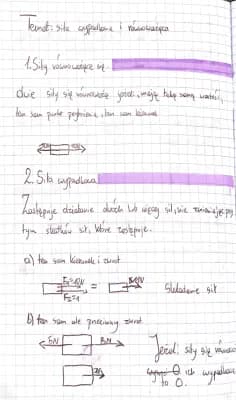 Temat: siła wypadkowa i równoważąca
1. Siły równoważące się.
dwie siły się równoważą jeżeli, mają taką samą wartość,
ten sam punkt, ten sam kierunek
2. Siła wypadkowa
Zastępuje działanie dwóch lub więcej sił, nie zmieniając przy
tym skutków sił, które zastępuje.
a) ten sam kierunek i zwrot
= Składanie sił
b) ten sam ale przeciwny zwrot
5N 8N Jeżeli siły się równoważą
0 ich wypadkowa
to 0.